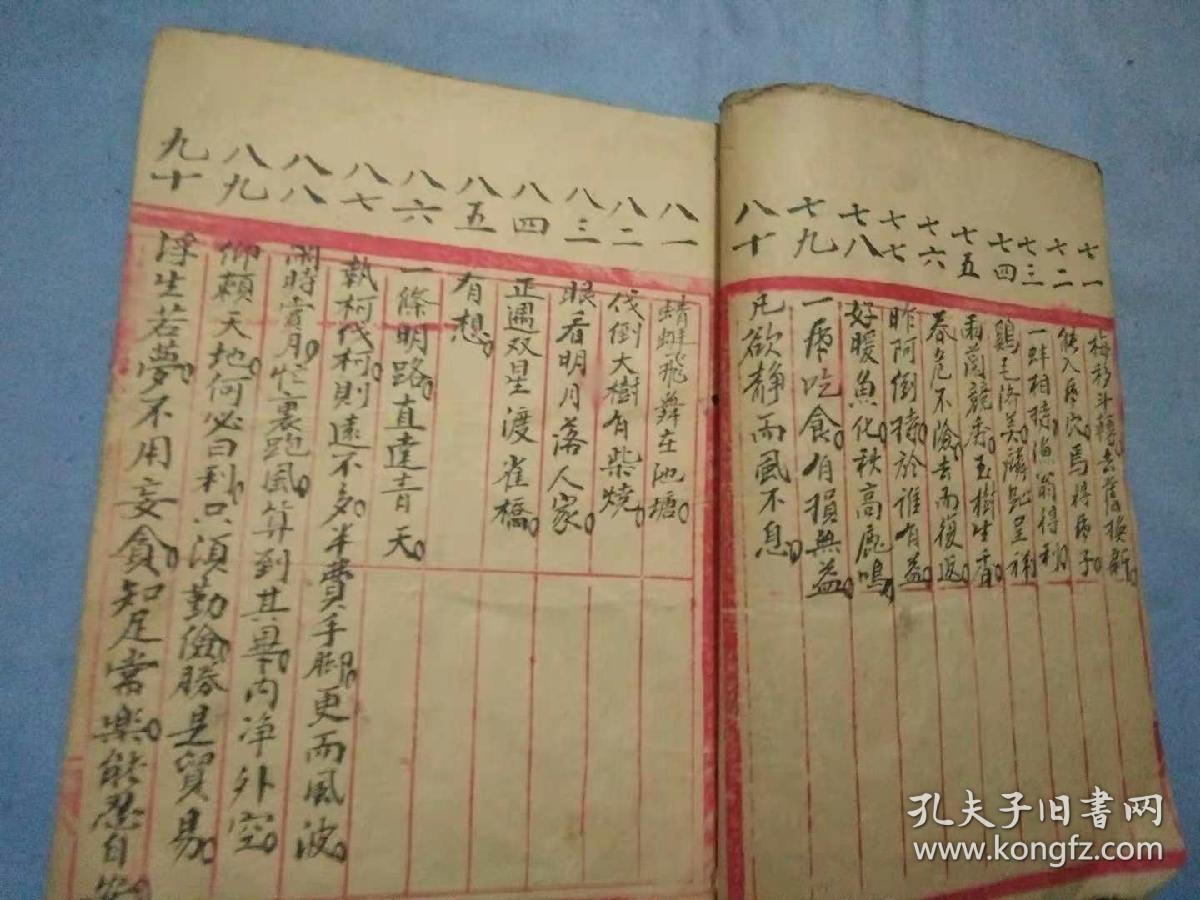 七一 梅移斗轉。去舊換新。
七二 穴。馬得子
七三 一蚌相持。漁翁得利。
七四 鷄毛濟美。麟趾呈祥
七五 雨蘭競秀。玉樹生香。
七六 春危不險。去而復返。
七七 昨阿倒持。於誰有益。
七八 好暖魚化。秋高鹿鳴。
七九 一病吃食。有損無益。
八十 凡欲靜而風不息。
八一 蜻蜓飛舞在池塘。
八二 伐倒大樹有柴燒。
八三 眼看明月落人家。
八四 正遇双星渡雀橋。
八五 有想。
八六 一條明路。直達青天。
八七 執柯伐柯。則遠不多。半費手脚。更而風波。
八八 閑時賞月。忙裏跑風。算到其畢。內净外空。
八九 仰賴天地。何必曰利。只須勤儉。勝是貿易。
九十 浮生若夢。不用妄貪。知足常樂。能忍自安。
孔夫子旧书网
www.kongfz.com